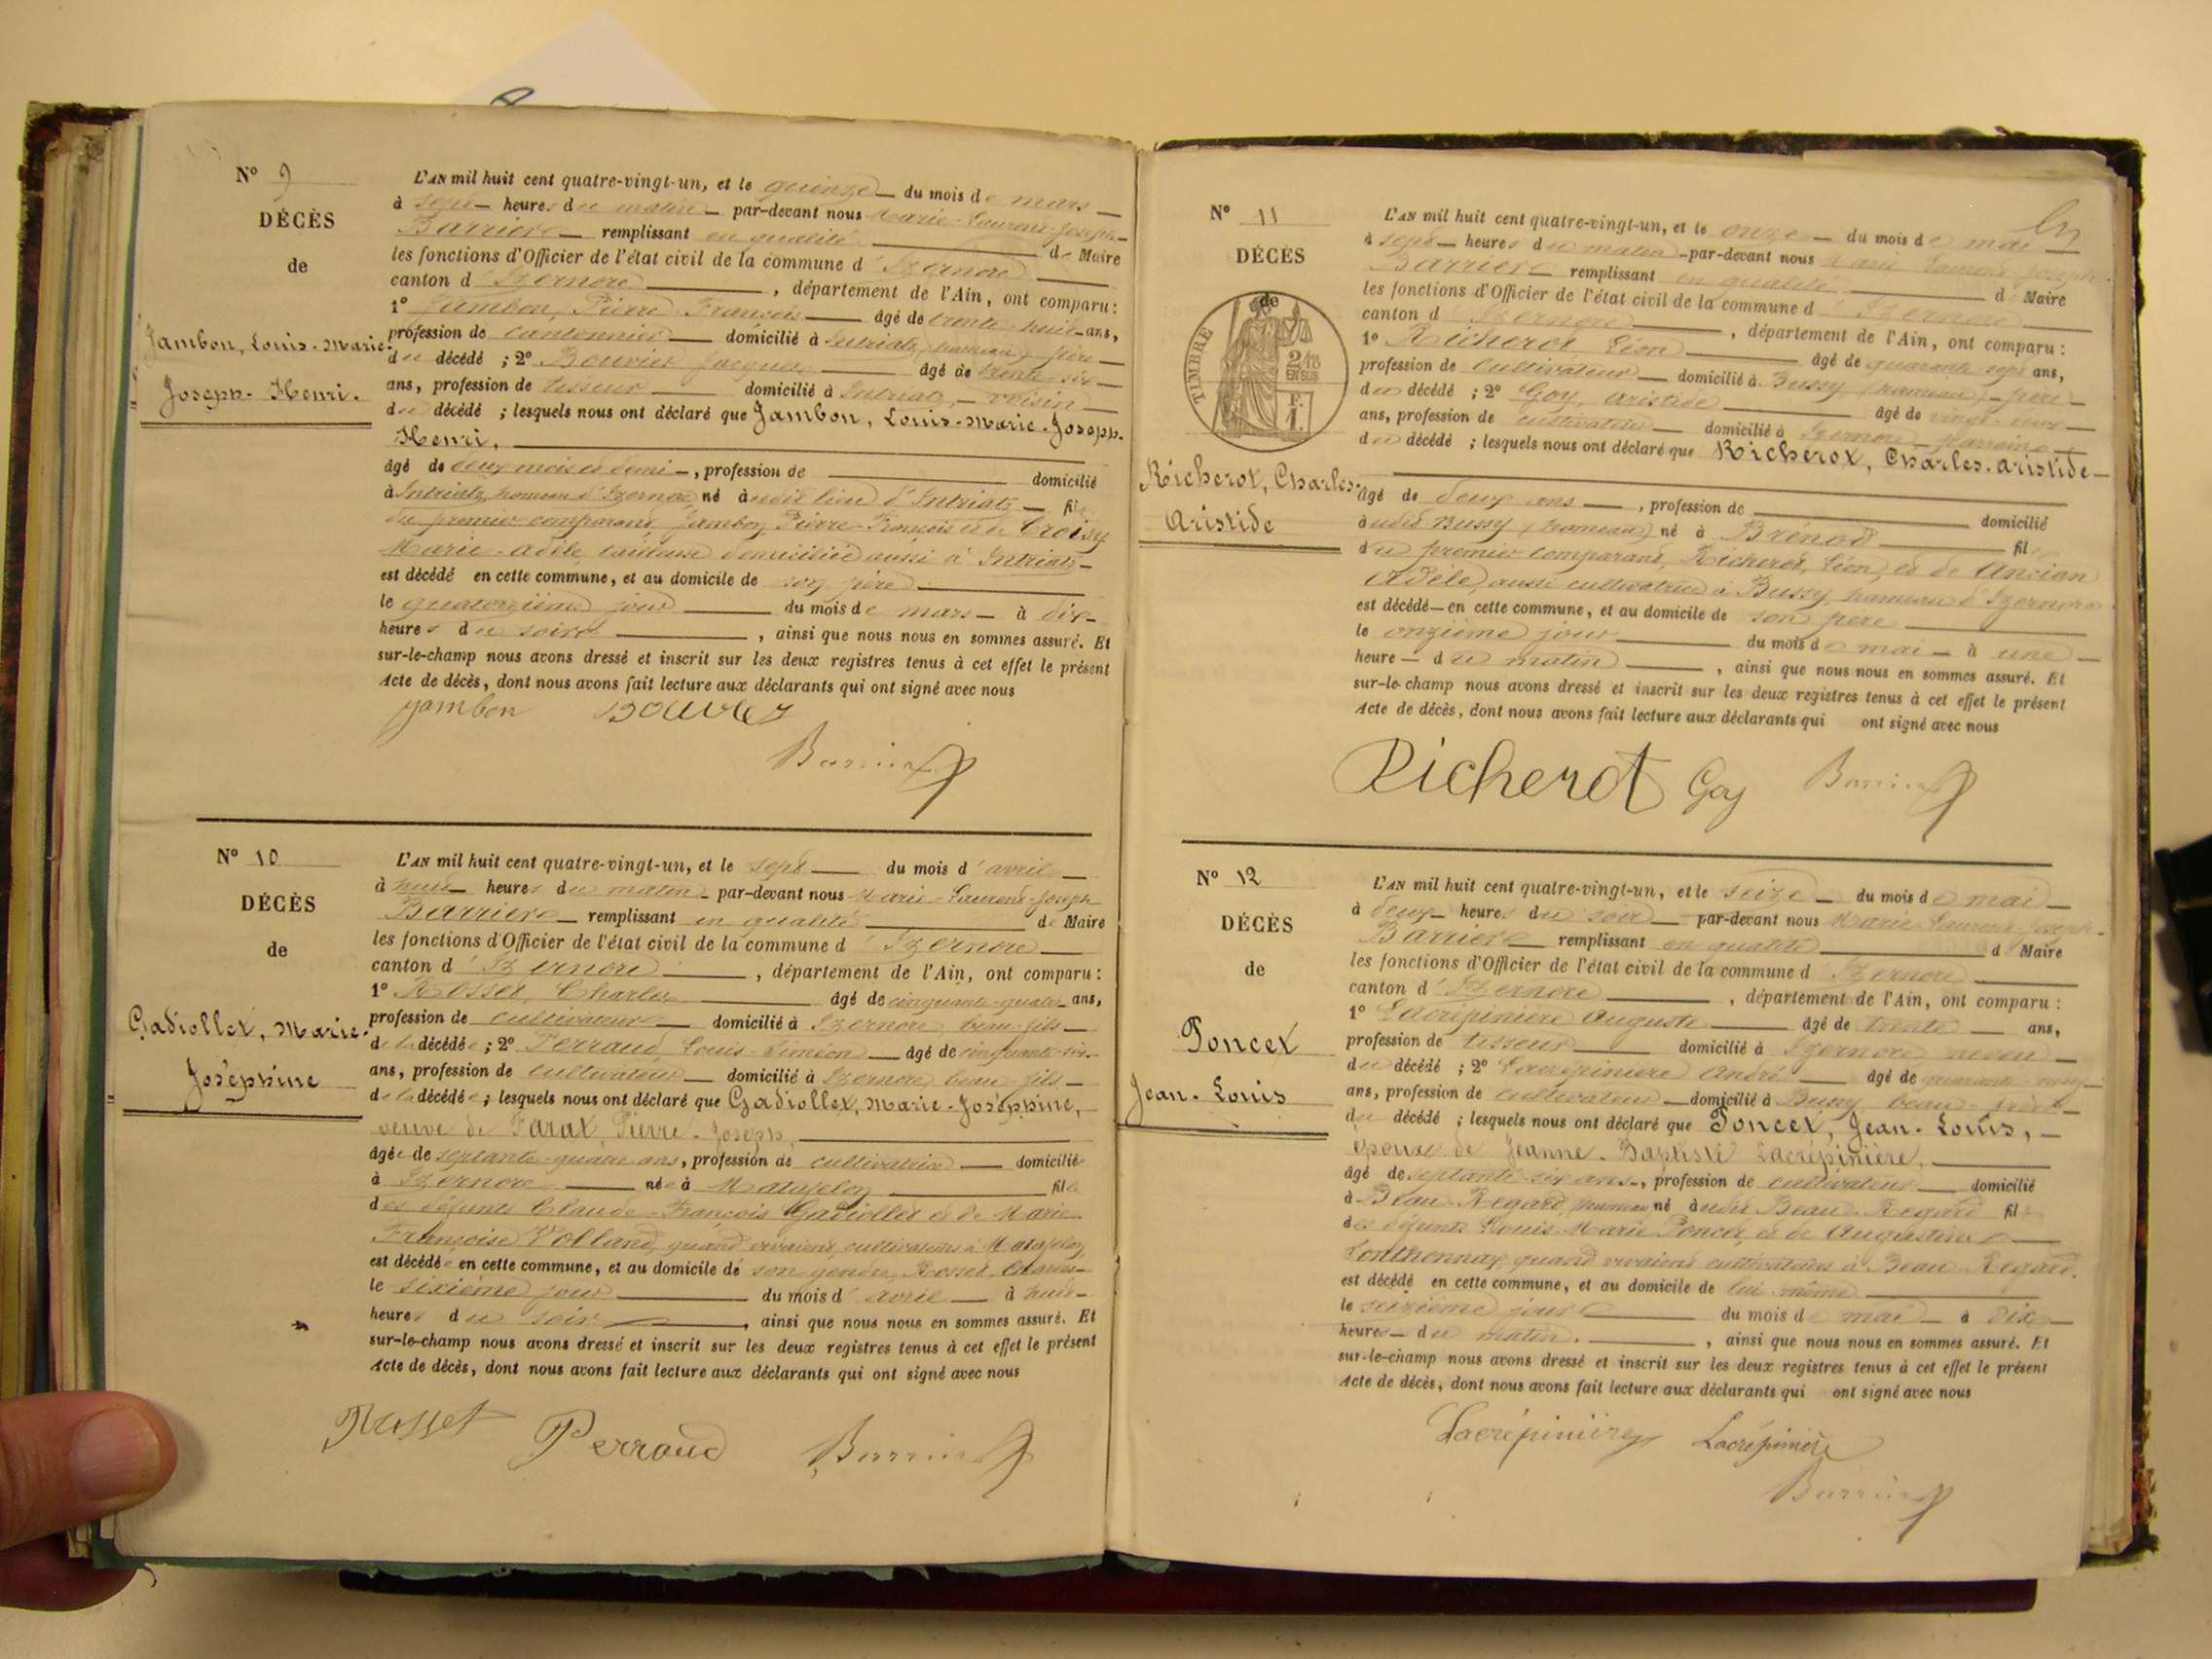 N° 9
DÉCÈS
de
Jambon, Louis-Marie-
Joseph-Henri.
L'AN mil huit cent quatre-vingt-un, et le quinze du mois de mars
à sept heures du matin par-devant nous Marie-Laurent-Joseph-
Barrière remplissant en qualité de Maire
les fonctions d'Officier de l'état civil de la commune d'Izernore
canton d'Izernore, département de l'Ain, ont comparu:
1° Jambon, Pierre-François âgé de trente-huit ans,
profession de cantonnier domicilié à Intriatz, hameau, père
du décédé; 2° Bouvier Jacques âgé de trente-six
ans, profession de tisseur domicilié à Intriatz, voisin
du décédé; lesquels nous ont déclaré que Jambon, Louis-Marie-Joseph-
Henri,
âgé de deux mois et demi, profession de domicilié
à Intriatz, hameau d'Izernore, né audit lieu d'Intriatz fils
du premier comparant Jambon Pierre-François et de Croisy
Marie-Adèle, tailleuse domiciliée aussi à Intriatz
est décédé en cette commune, et au domicile de son père
le quatorzième jour du mois de mars à dix
heures du soir, ainsi que nous nous en sommes assuré. Et
sur-le-champ nous avons dressé et inscrit sur les deux registres tenus à cet effet le présent
Acte de décès, dont nous avons fait lecture aux déclarants qui ont signé avec nous
Jambon Bouvier
Barrière
N° 10
DÉCÈS
de
Gadiollet, Marie-
Joséphine
L'AN mil huit cent quatre-vingt-un, et le sept du mois d'avril
à huit heures du matin par-devant nous Marie-Laurent-Joseph
Barrière remplissant en qualité de Maire
les fonctions d'Officier de l'état civil de la commune d'Izernore
canton d'Izernore, département de l'Ain, ont comparu:
1° Rosset, Charles âgé de cinquante-quatre ans,
profession de cultivateur domicilié à Izernore beau-fils
de la décédée; 2° Perraud, Louis-Siméon âgé de cinquante-six
ans, profession de cultivateur domicilié à Izernore beau-fils
de la décédée; lesquels nous ont déclaré que Gadiollet, Marie-Joséphine,
veuve de Farat, Pierre-Joseph,
âgée de septante-quatre ans, profession de cultivatrice domicilié
à Izernore née à Matafelon fille
des défunts Claude-François Gadiollet et de Marie
Françoise Volland, quand vivaient, cultivateurs à Matafelon
est décédée en cette commune, et au domicile de son gendre, Rosset, Charles
le sixième jour du mois d'avril à huit
heures du soir, ainsi que nous nous en sommes assuré. Et
sur-le-champ nous avons dressé et inscrit sur les deux registres tenus à cet effet le présent
Acte de décès, dont nous avons fait lecture aux déclarants qui ont signé avec nous
Rosset Perraud Barrière
N° 11
DÉCÈS
de
TIMBRE
2/10
EN SUS
F.
1.
Richerot, Charles-
Aristide
L'AN mil huit cent quatre-vingt-un, et le onze du mois de mai
à sept heures du matin par-devant nous Marie Laurent Joseph-
Barrière remplissant en qualité d Maire
les fonctions d'Officier de l'état civil de la commune d'Izernore
canton d'Izernore, département de l'Ain, ont comparu:
1° Richerot, Léon âgé de quarante-sept ans,
profession de cultivateur domicilié à Bussy (hameau) père
du décédé; 2° Goy, Aristide âgé de vingt
ans, profession de cultivateur domicilié à Izernore parrain
du décédé; lesquels nous ont déclaré que Richerot, Charles-Aristide
âgé de deux ans, profession de domicilié
audit Bussy (hameau) né à Brénod fils
du premier comparant, Richerot, Léon, et de Ancian
Adèle, aussi cultivatrice à Bussy, hameau d'Izernore
est décédé en cette commune, et au domicile de son père
le onzième jour du mois de mai à une
heure du matin, ainsi que nous nous en sommes assuré. Et
sur-le-champ nous avons dressé et inscrit sur les deux registres tenus à cet effet le présent
Acte de décès, dont nous avons fait lecture aux déclarants qui ont signé avec nous
Richerot Goy Barrière
N° 12
DÉCÈS
de
Poncet
Jean-Louis
L'AN mil huit cent quatre-vingt-un, et le seize du mois de mai
à deux heures du soir par-devant nous Marie Laurent Joseph-
Barrière remplissant en qualité d Maire
les fonctions d'Officier de l'état civil de la commune d'Izernore
canton d'Izernore, département de l'Ain, ont comparu:
1° Lacrépinière Auguste âgé de trente ans,
profession de tisseur domicilié à Izernore neveu
du décédé; 2° Lacrépinière André âgé de quarante-neuf
ans, profession de cultivateur domicilié à Bussy beau-frère
du décédé; lesquels nous ont déclaré que Poncet, Jean-Louis,
époux de Jeanne-Baptiste Lacrépinière,
âgé de septante-six ans, profession de cultivateur domicilié
à Beau-Regard, hameau né audit Beau-Regard fils
des défunts Louis-Marie Poncet, et de Augustine
Lonthonnay, quand vivaient cultivateurs à Beau-Regard.
est décédé en cette commune, et au domicile de lui-même
le seizième jour du mois de mai à dix
heures du matin, ainsi que nous nous en sommes assuré. Et
sur-le-champ nous avons dressé et inscrit sur les deux registres tenus à cet effet le présent
Acte de décès, dont nous avons fait lecture aux déclarants qui ont signé avec nous
Lacrépinière Lacrépinière
Barrière